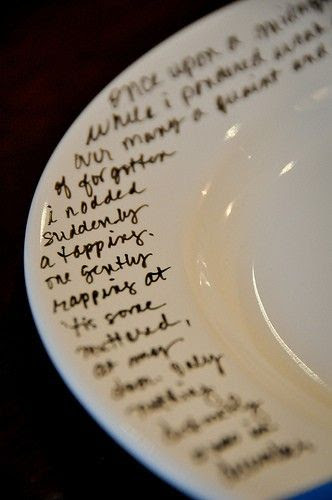 once upon a midnig
while i pondered weak
over many a quaint and
of forgotten
i nodded
suddenly
a tapping.
one gently
rapping at
'tis some
muttered,
at my
door. only
nothing
distinctly